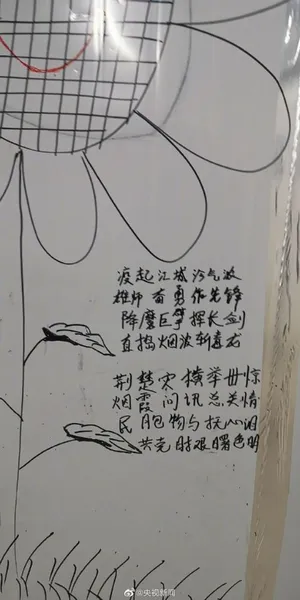 疫起江城汾气波
雄师奋勇作先锋
降魔巨擘挥长剑
直捣烟波斩毒龙
荆楚灾横举世惊
烟霞问讯总关情
民胞物与抚心泪
共克时艰曙色明
@央视新闻